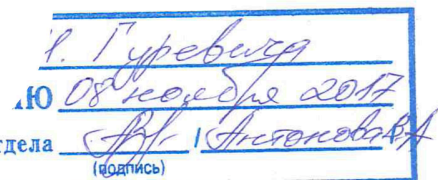 Гуревича
Ю 08 ноября 2017
тдела / Антонова В.А
(подпись)